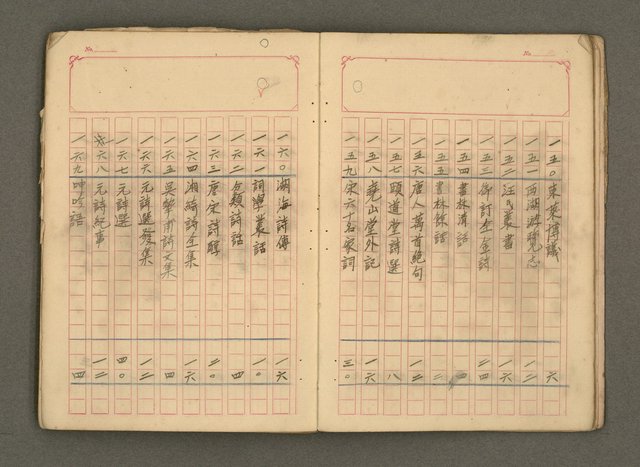 No.
一五〇東萊博議 六
一五一西湖游覽志 一二
一五二汪氏叢書 一六
一五三御訂全金詩 二四
一五四書林清話
一五五書林餘話 二
一五六唐人萬首絕句 一二
一五七頤道堂詩選 八
一五八堯山堂外記 一六
一五九宋六十名家詞 三〇
No.
一六〇湖海詩傳 一六
一六一詞學叢話 一〇
一六二合類詩話 四
一六三唐宋詩醇 二〇
一六四湘綺詩全集 一二
一六五吳摯甫詩文集 四
一六六元詩選癸集 一二
一六七元詩選 四〇
一六八元詩紀事 一二
一六九呻吟語 四